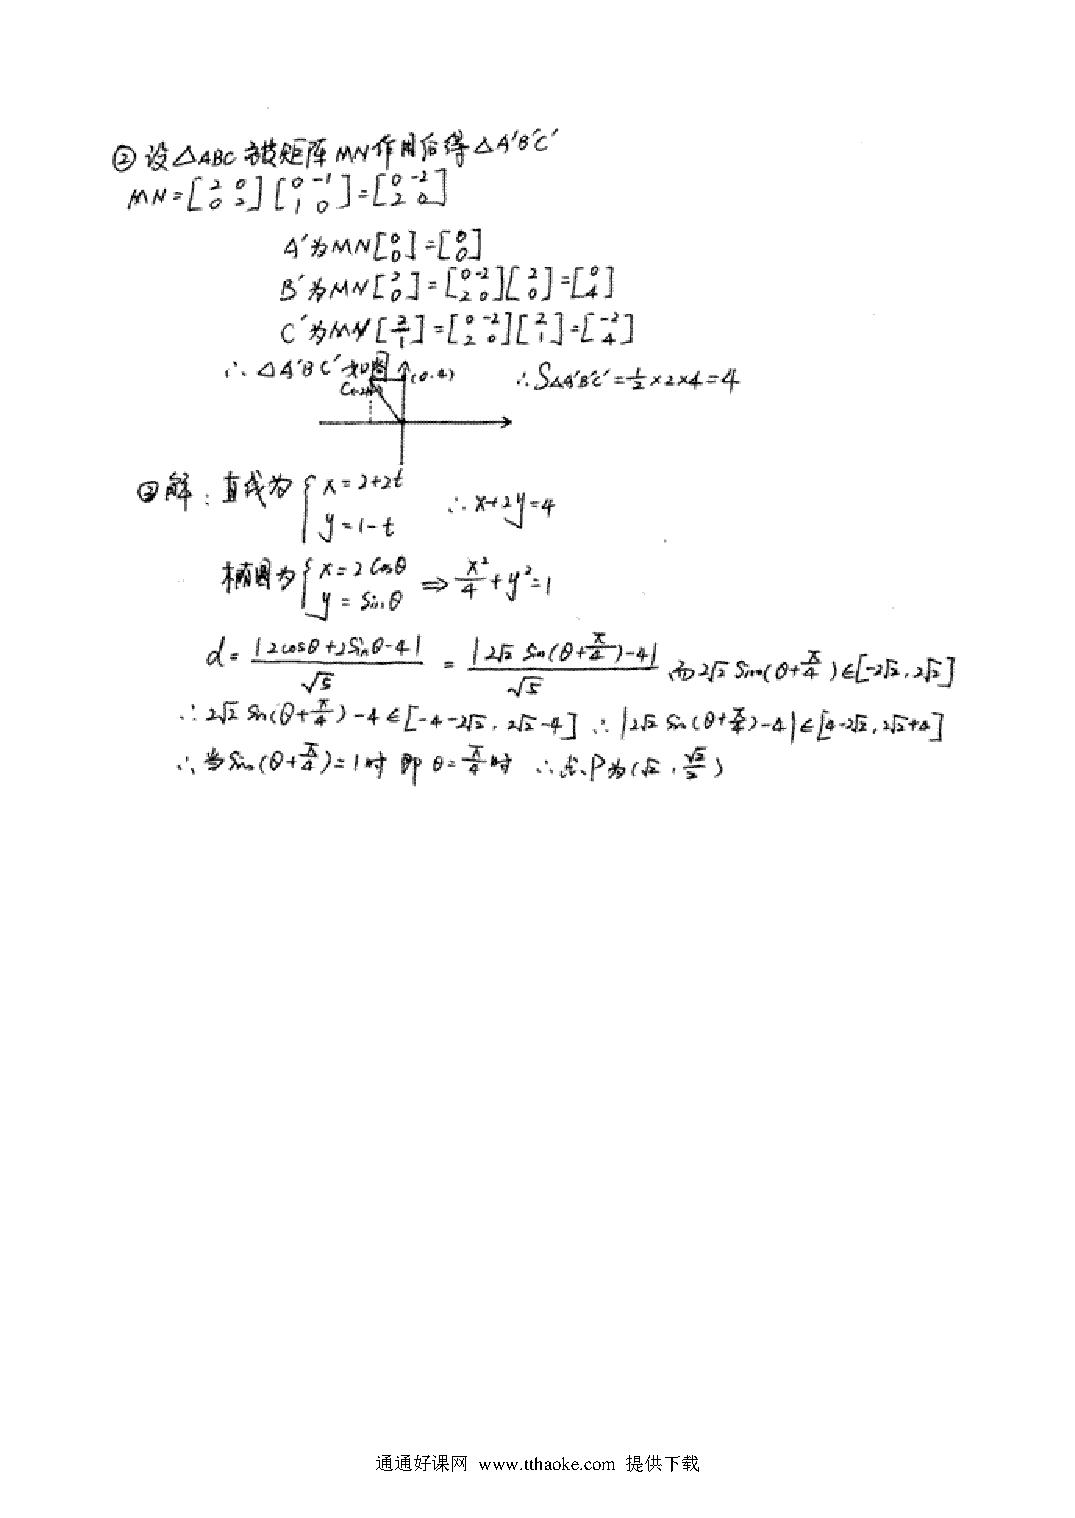 ② 设△ABC 被矩阵 MN 作用后得 △A'B'C'
MN=[2 0; 0 2][0 -1; 1 0]=[0 -2; 2 0]
A'为MN[0; 0]=[0; 0]
B'为MN[2; 0]=[0 -2; 2 0][2; 0]=[0; 4]
C'为MN[2; 1]=[0 -2; 2 0][2; 1]=[-2; 4]
∴ △A'B'C' 如图 (0.4) ∴S△A'B'C'=1/2×2×4=4
③解: 直线为 { x=2+2t ∴ x+2y=4
y=1-t
椭圆为 { x=2cosθ ⇒ x²/4+y²=1
y=sinθ
d=|2cosθ+2sinθ-4|/√5 = |2√2 sin(θ+π/4)-4|/√5 而2√2 sin(θ+π/4)∈[-2√2,2√2]
∴2√2 sin(θ+π/4)-4∈[-4-2√2,2√2-4] ∴|2√2 sin(θ+π/4)-4|∈[4-2√2,2√2+4]
∴当sin(θ+π/4)=1时 即 θ=π/4时 ∴点P为(√2,√2/2)
通通好课网 www.tthaoke.com 提供下载